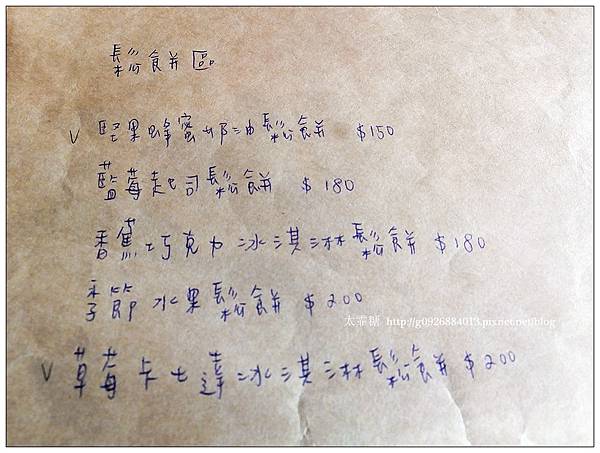 鬆餅區
V 堅果蜂蜜奶油鬆餅 $150
藍莓起司鬆餅 $180
香蕉巧克力冰淇淋鬆餅 $180
季節水果鬆餅 $200
太乖糖 http://g0926884013.pixnet.net/blog
V 草莓卡士達冰淇淋鬆餅 $200